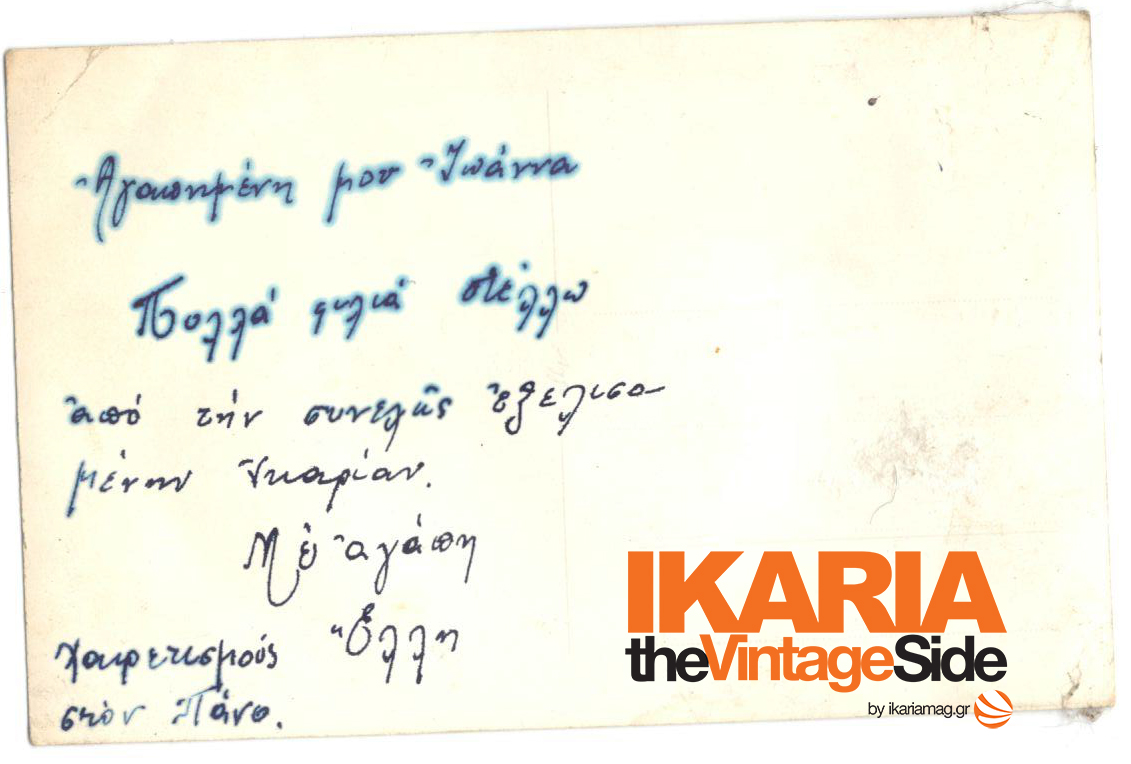 Ἀγαπημένη μου Ἰωάννα
Πολλά φιλιά στέλλω
ἀπό τήν συνεχῶς ἐξελισσο-
μένην Ἰκαρίαν.
Μέ ἀγάπη
Ἕλλη
χαιρετισμούς
στόν Πάνο.
IKARIA
theVintageSide
by ikariamag.gr